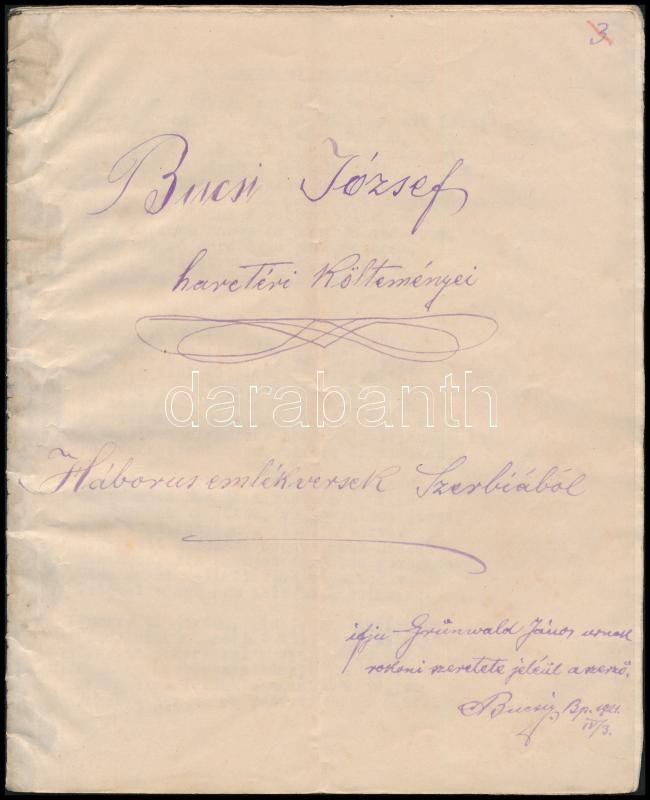 3
Bucsi József
harctéri költeményei
darabanth
Háborus emlékversek Szerbiából
ifju Grünwald János urnak
rokoni szeretete jeléül a szerző.
Bucsi J. Bp. 1921.
IV/3.